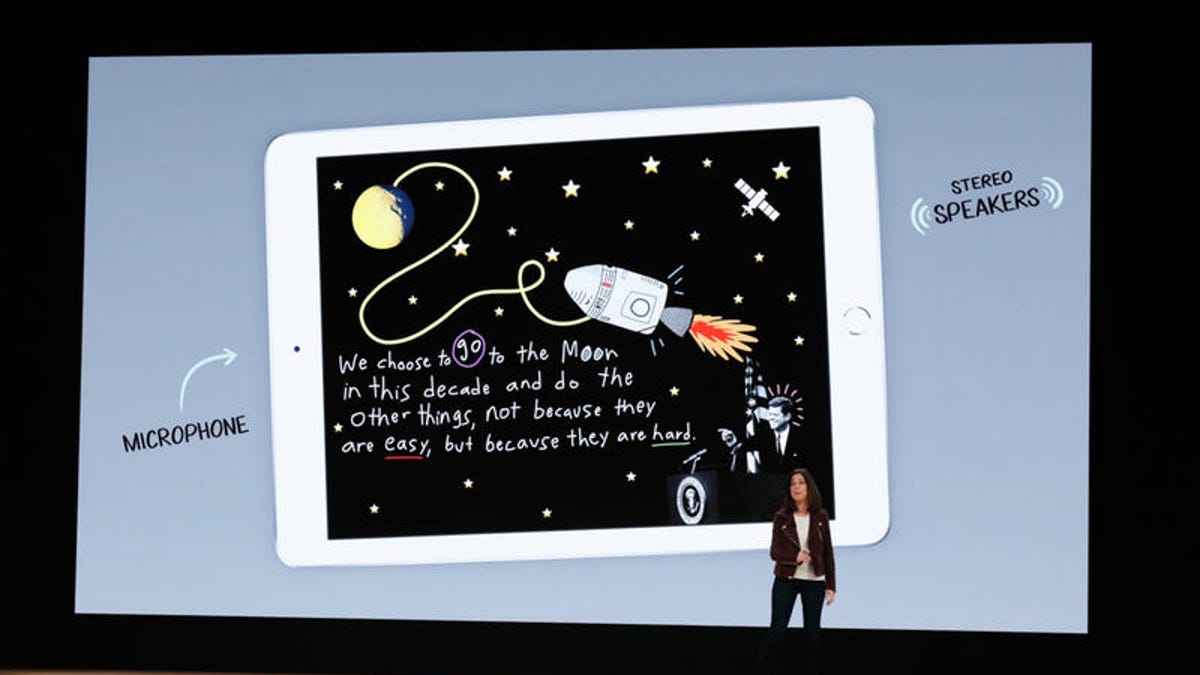 STEREO
SPEAKERS
We choose to go to the Moon
in this decade and do the
other things, not because they
are easy, but because they are hard.
MICROPHONE